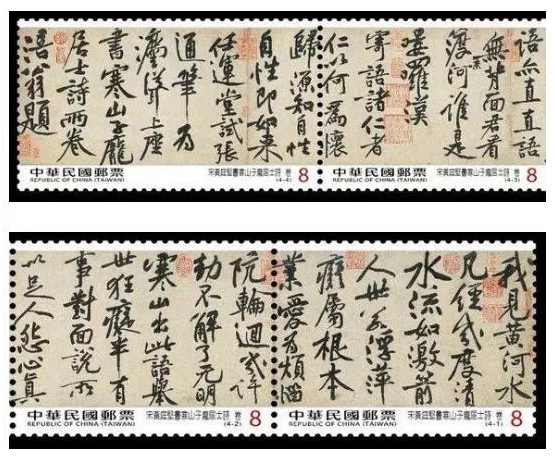 語亦直直語
無背面君看
渡奈河誰是
嘍羅漢
寄語諸仁者
仁以何為懷
歸源知自性
自性即如來
任運堂試張
通筆為
法聳上座
書寒山子龐
居士詩兩卷
涪翁題
中華民國郵票
REPUBLIC OF CHINA (TAIWAN)
宋黃庭堅書寒山子龐居士詩 卷
(4-4)
8
中華民國郵票
REPUBLIC OF CHINA (TAIWAN)
宋黃庭堅書寒山子龐居士詩 卷
(4-3)
8
我見黃河水
凡經幾度清
水流如激箭
人世若浮萍
癡屬根本
業愛為煩惱
阬輪迴幾許
劫不解了无明
寒山出此語舉
世狂癡半有
事對面說所
以足人怨心真
中華民國郵票
REPUBLIC OF CHINA (TAIWAN)
宋黃庭堅書寒山子龐居士詩 卷
(4-2)
8
中華民國郵票
REPUBLIC OF CHINA (TAIWAN)
宋黃庭堅書寒山子龐居士詩 卷
(4-1)
8